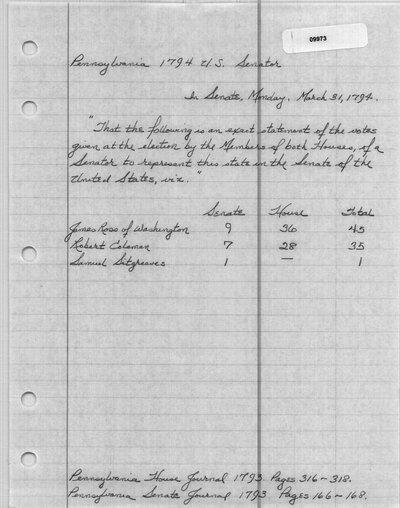 09973
Pennsylvania 1794 U.S. Senator
In Senate, Monday, March 31, 1794.
"That the following is an exact statement of the votes
given, at the election by the Members of both Houses, of a
Senator to represent this state in the Senate of the
United States, viz."
Senate House Total
James Ross of Washington 9 36 45
Robert Coleman 7 28 35
Samuel Sitgreaves 1 — 1
Pennsylvania House Journal 1793 Pages 316-318.
Pennsylvania Senate Journal 1793 Pages 166-168.